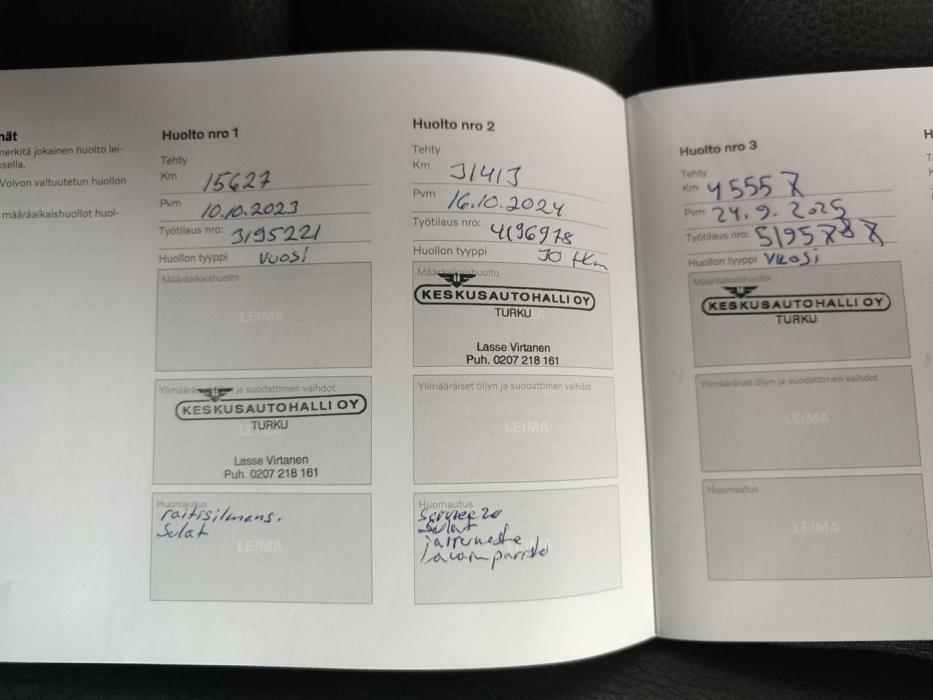 nät
merkitä jokainen huolto lei-
ksella.
Volvon valtuutetun huollon
määräaikaishuollot huol-
Huolto nro 1
Tehty
Km 15627
Pvm 10.10.2023
Työtilaus nro: 3195221
Huollon tyyppi vuosi
Määräaikaishuolto
LEIMA
Ylimääräiset öljyn ja suodattimen vaihdot
KESKUSAUTOHALLI OY
TURKU
Lasse Virtanen
Puh. 0207 218 161
Huomautus
raitisilmans.
Sulat
LEIMA
Huolto nro 2
Tehty
Km 31413
Pvm 16.10.2024
Työtilaus nro: 4196978
Huollon tyyppi 30 tkm
Määräaikaishuolto
KESKUSAUTOHALLI OY
TURKU
Lasse Virtanen
Puh. 0207 218 161
Ylimääräiset öljyn ja suodattimen vaihdot
LEIMA
Huomautus
Sulat
jarruneste
Huolto nro 3
Tehty
Km 45557
Pvm 24.9.2025
Työtilaus nro:
Huollon tyyppi vuosi
Määräaikaishuolto
KESKUSAUTOHALLI OY
TURKU
Ylimääräiset öljyn ja suodattimen vaihdot
LEIMA
Huomautus
LEIMA
H